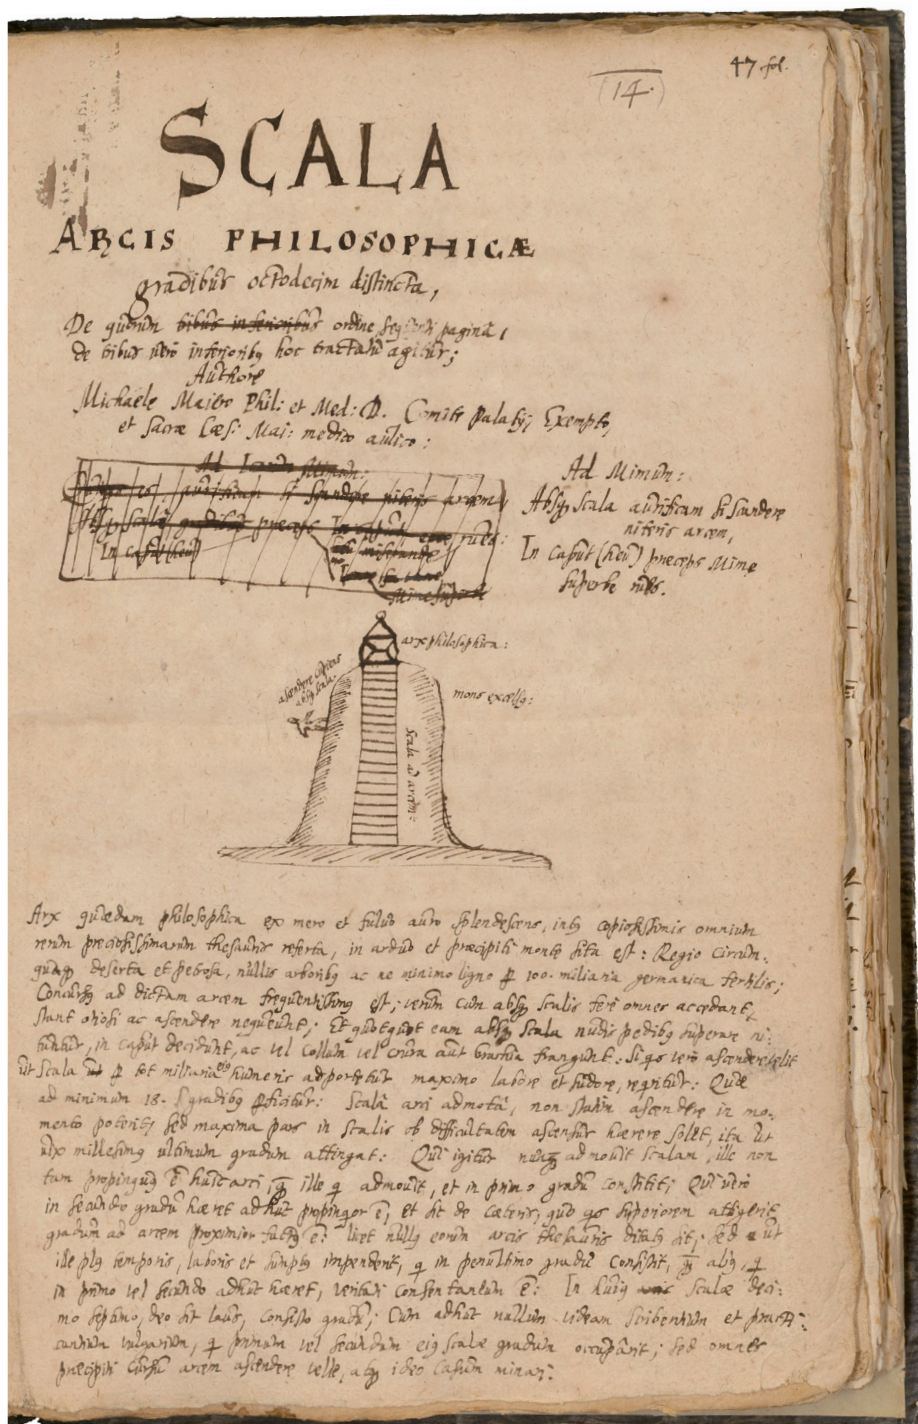 47 fol.
(14.)
SCALA
ARCIS PHILOSOPHICÆ
gradibus octodecim distincta,
De quorum tribus inferioribus ordine sequenti pagina,
de tribus verò inferioribq hoc tractatu agitur;
Authore
Michaële Maiero Phil: et Med: D. Comite Palatij Exempto,
et Sacræ Cæs: Mai: medico aulico:
Ad Mimum:
scandere niteris arcem
Absq scalâ gradibus præceps ruës:
In caput (heu)
Mime superbe
Ad Mimum:
Absq scala aurificam si scandere
niteris arcem,
In caput (heu) præceps Mime
superbe rues.
arx philosophica:
ascendere cupiens
absq scala.
mons excelsq:
Scala ad arcem:
Arx quædam philosophica ex mero et fulvo auro splendescens, intq copiosissimis omnium
rerum præciosissimarum thesauris referta, in arduo et præcipiti monte sita est: Regio circum-
quaq deserta et petrosa, nullis arboribq ac ne minimo ligno p 100. miliaria germanica fertilis;
Concursq ad dictam arcem frequentissimq est; verùm cùm absq scalis ferè omnes accedant,
stant otiosi ac ascendere nequeunt; Et quotquot eam absq scala nudis pedibq superare ni-
tuntur, in caput decidunt, ac vel collum vel crura aut brachia frangunt: Si qs verò ascendere velit
ut scala p tot miliaria eiq humeris adportetur maximo labore et sudore, reqritur: Quæ
ad minimum 18. gradibq pficitur: Scalâ arci admotâ, non statim ascendere in mo-
mento poterit, sed maxima pars in scalis ob difficultatem ascensus hærere solet, ita ut
vix millesimq ultimum gradum attingat: Qui igitur nunq admovit scalam, ille non
tam propinquq ē huic arci, q ille q admovit, et in primo gradu consistit; Qui verò
in secundo gradu hæret adhuc propinqior ē, et sic de cæteris, quò qs superiorem attigerit
gradum ad arcem proximior factq ē: licet nullq eorum arcis thesauris ditatq sit, sed ut
ille plq temporis, laboris et sumptq impenderit, q in penultimo gradu consistit, q aliq, q
in primo vel secundo adhuc hæret, veritati consentaneum ē: In huiq scalæ deci-
mo septimo, deo sit laus, consisto gradu; Cum adhuc nullum videam scribentium et practi-
cantium vulgarium, q primum vel secundum eiq scalæ gradum occupârit; sed omnes
præcipiti cursu arcem ascendere velle, atq ideo casum minari: